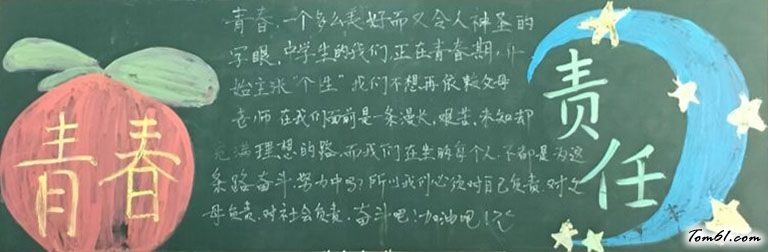 青春
青春，一个多么美好而又令人神圣的
字眼，中学生的我们，正在青春期，开
始主张"个性"我们不想再依赖父母
老师在我们面前是一条漫长，艰苦，未知却
充满理想的路，而我们在坐的每个人，不都是为这
条路奋斗，努力中吗？所以我们必须对自己负责，对父
母负责，对社会负责，奋斗吧！加油吧！
责任
Tom61.com